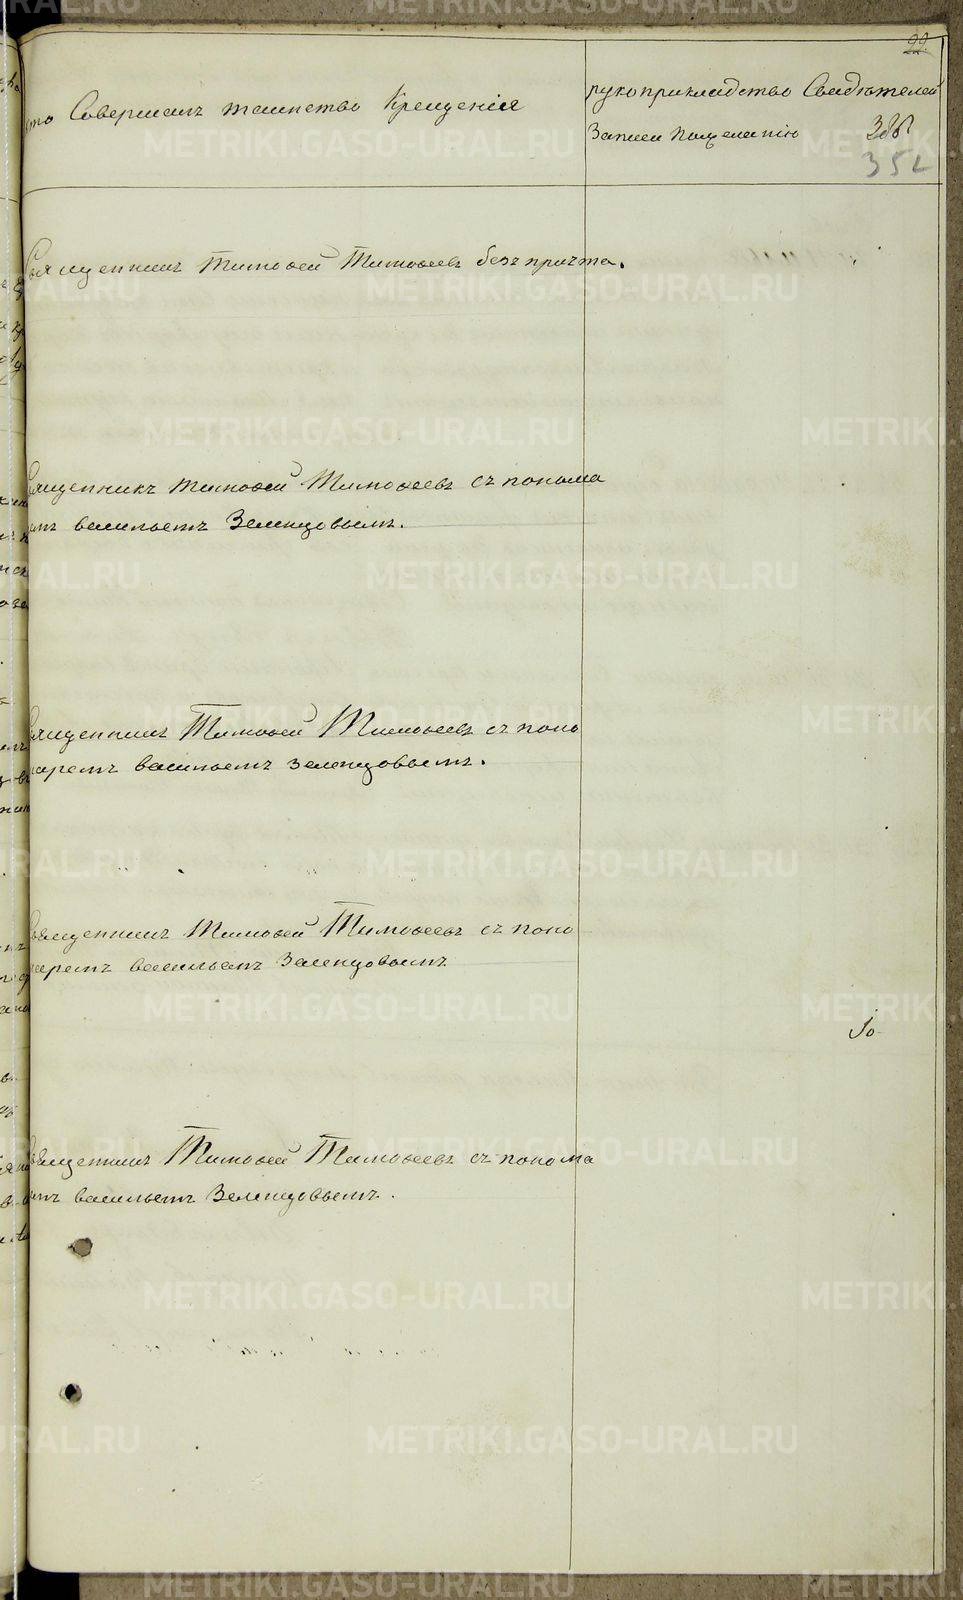 22
кто Совершалъ таинство Крещенія
рукоприкладство Свидѣтелей
Записи по желанію
352
Священникъ Тимоѳей Тимоѳеевъ безъ причта.
Священникъ Тимоѳей Тимоѳеевъ съ понома
емъ васильемъ Зеленцовымъ.
Священникъ Тимоѳей Тимоѳеевъ съ поно
маремъ васильемъ Зеленцовымъ.
Священникъ Тимоѳей Тимоѳеевъ съ поно
маремъ васильемъ Зеленцовымъ
Священникъ Тимоѳей Тимоѳеевъ съ понома
емъ васильемъ Зеленцовымъ.
METRIKI.GASO-URAL.RU